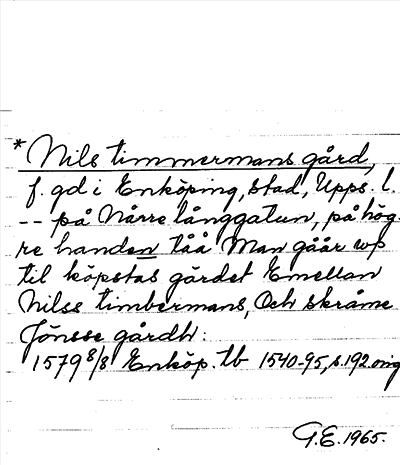 * Nils timmermans gård,
f. gd i Enköping, stad, Upps. l.
-- på Nårre långgatun, på hög-
re handen tåå Man gåår wp
til köpstas gärdet Emellan
Nilss timbermans, Och skråme
Jönsse gårdh:
1579 8/8 Enköp. tb 1540-95, s.192 orig
G.E. 1965.